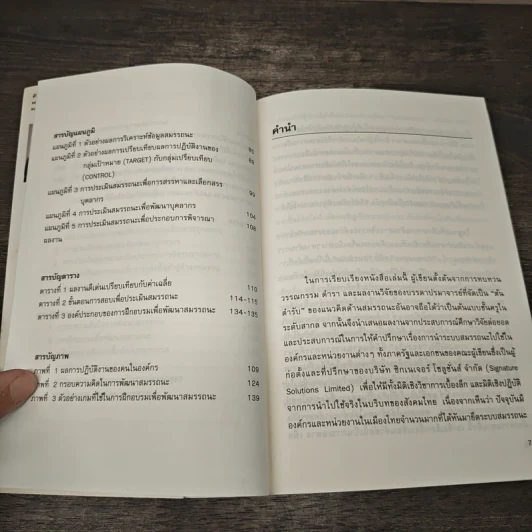 สารบัญแผนภูมิ
แผนภูมิที่ 1 ตัวอย่างผลการวิเคราะห์ข้อมูลสมรรถนะ
แผนภูมิที่ 2 ตัวอย่างผลการเปรียบเทียบผลการปฏิบัติงานของ
กลุ่มเป้าหมาย (TARGET) กับกลุ่มเปรียบเทียบ
(CONTROL)
แผนภูมิที่ 3 การประเมินสมรรถนะเพื่อการสรรหาและเลือกสรร
บุคลากร
แผนภูมิที่ 4 การประเมินสมรรถนะเพื่อพัฒนาบุคลากร 104
แผนภูมิที่ 5 การประเมินสมรรถนะเพื่อประกอบการพิจารณา 108
ผลงาน
สารบัญตาราง
ตารางที่ 1 ผลงานดีเด่นเปรียบเทียบกับค่าเฉลี่ย 110
ตารางที่ 2 ขั้นตอนการสอบเพื่อประเมินสมรรถนะ 114-115
ตารางที่ 3 องค์ประกอบของการฝึกอบรมเพื่อพัฒนาสมรรถนะ 134-135
สารบัญภาพ
ภาพที่ 1 ผลการปฏิบัติงานของคนในองค์กร 109
ภาพที่ 2 กรอบความคิดในการพัฒนาสมรรถนะ 124
ภาพที่ 3 ตัวอย่างเกมที่ใช้ในการฝึกอบรมเพื่อพัฒนาสมรรถนะ 139
คำนำ
ในการเรียบเรียงหนังสือเล่มนี้ ผู้เขียนตั้งต้นจากการทบทวน
วรรณกรรม ตำรา และผลงานวิจัยของบรรดาปรมาจารย์ที่จัดเป็น "ต้น
ตำรับ" ของแนวคิดด้านสมรรถนะอันอาจถือได้ว่าเป็นต้นแบบชั้นครูใน
ระดับสากล จากนั้นจึงนำเสนอผลงานจากประสบการณ์ศึกษาวิจัยต่อยอด
และประสบการณ์ในการให้คำปรึกษาเรื่องการนำระบบสมรรถนะไปใช้ใน
องค์กรและหน่วยงานต่างๆ ทั้งภาครัฐและเอกชนของคณะผู้เขียนซึ่งเป็นผู้
ก่อตั้งและที่ปรึกษาของบริษัท ซิกเนเจอร์ โซลูชั่นส์ จำกัด (Signature
Solutions Limited) เพื่อให้มีทั้งมิติเชิงวิชาการเบื้องลึก และมิติเชิงปฏิบัติ
จากการนำไปใช้จริงในบริบทของสังคมไทย เนื่องจากเห็นว่า ปัจจุบันมี
องค์กรและหน่วยงานในเมืองไทยจำนวนมากที่ได้หันมายึดระบบสมรรถนะ
7